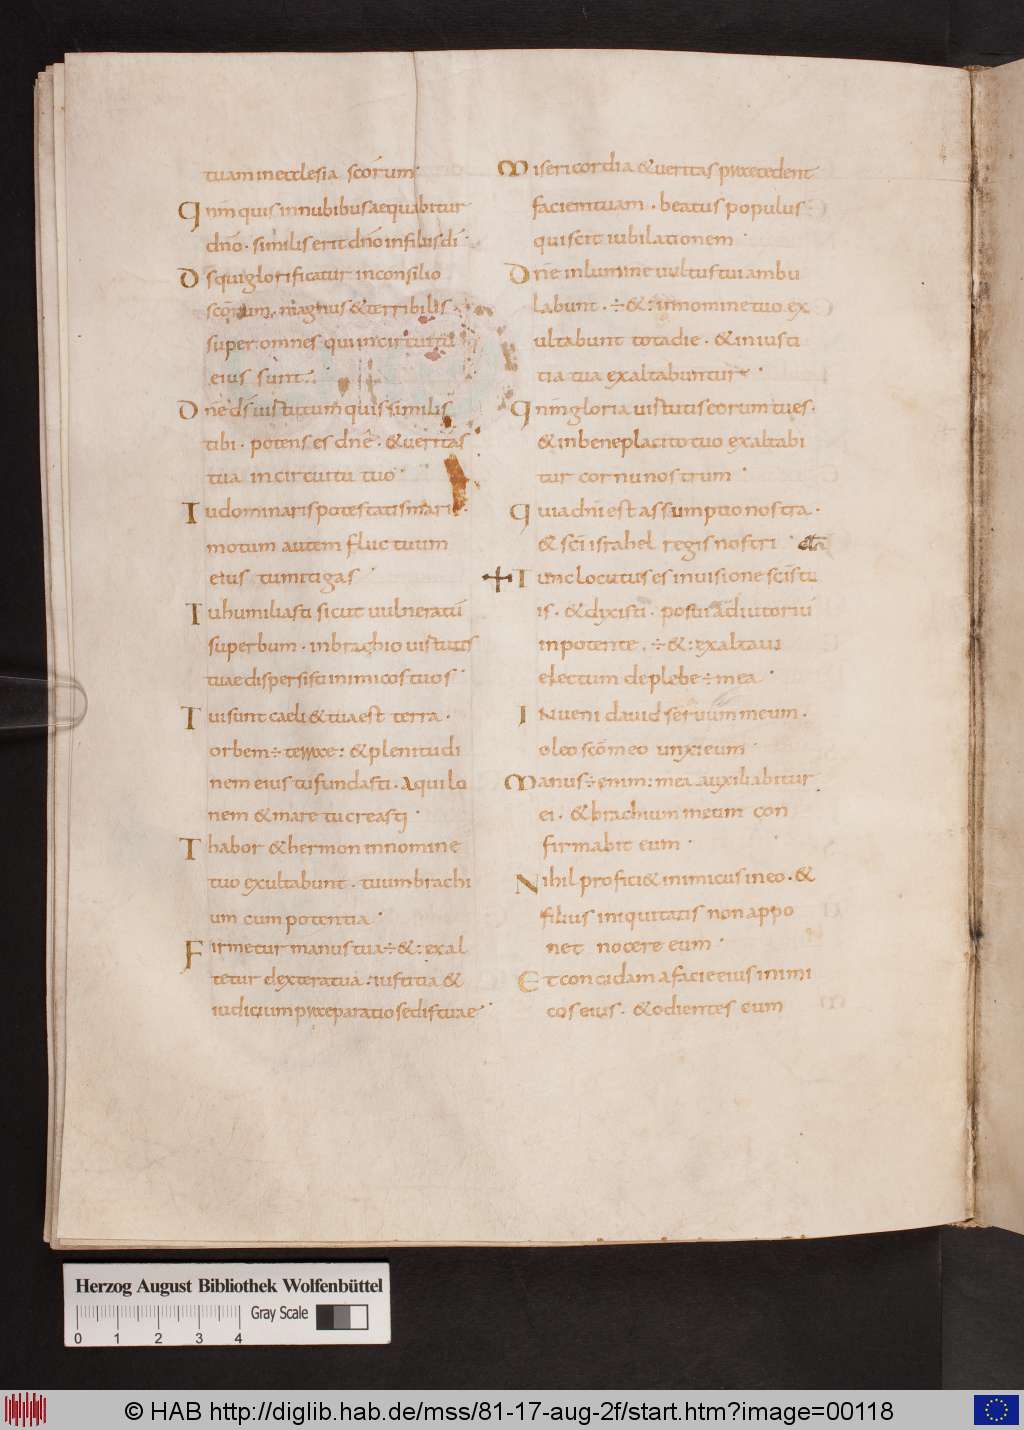 tuam in ecclesia scōrum·
Qnm̄ quis in nubibus aequabitur
dnō· similis erit dnō in filiis dī·
Ds qui glorificatur in consilio
scōrum, magnus & terribilis·
super omnes qui in circuitu
eius sunt·
Dnē ds̄ uirtutum quis similis
tibi· potens es dnē· & ueritas
tua in circuitu tuo·
Tu dominaris potestatis maris·
motum autem fluctuum
eius tu mitigas·
Tu humiliasti sicut uulneratū
superbum· in brachio uirtutis
tuae dispersisti inimicos tuos·
Tui sunt caeli & tua est terra·
orbem ÷ terrae: & plenitudi
nem eius tu fundasti· Aquilo
nem & mare tu creasti·
Thabor & hermon in nomine
tuo exultabunt· tuum brachi
um cum potentia·
Firmetur manus tua ÷ &: exal
tetur dextera tua: iustitia &
iudicium praeparatio sedis tuae·
Misericordia & ueritas praecedent
faciem tuam· beatus populus
qui scit iubilationem·
Dne in lumine uultus tui ambu
labunt· ÷ &: in nomine tuo ex
ultabunt tota die· & in iusti
tia tua exaltabuntur·
Qnm̄ gloria uirtutis eorum tu es·
& in beneplacito tuo exaltabi
tur cornu nostrum·
Quia dnī est assumptio nostra·
& scī israhel regis nostri·
Tunc locutus es in uisione scīs tu
is· & dixisti· posui adiutoriū
in potente· ÷ &: exaltaui
electum de plebe ÷ mea·
Inueni dauid seruum meum·
oleo scō meo unxi eum·
Manus ÷ enim: mea auxiliabitur
ei· & brachium meum con
firmabit eum·
Nihil profici& inimicus in eo· &
filius iniquitatis non appo
net nocere eum·
Et concidam a facie eius inimi
cos eius· & odientes eum
Herzog August Bibliothek Wolfenbüttel
Gray Scale
0 1 2 3 4
© HAB http://diglib.hab.de/mss/81-17-aug-2f/start.htm?image=00118